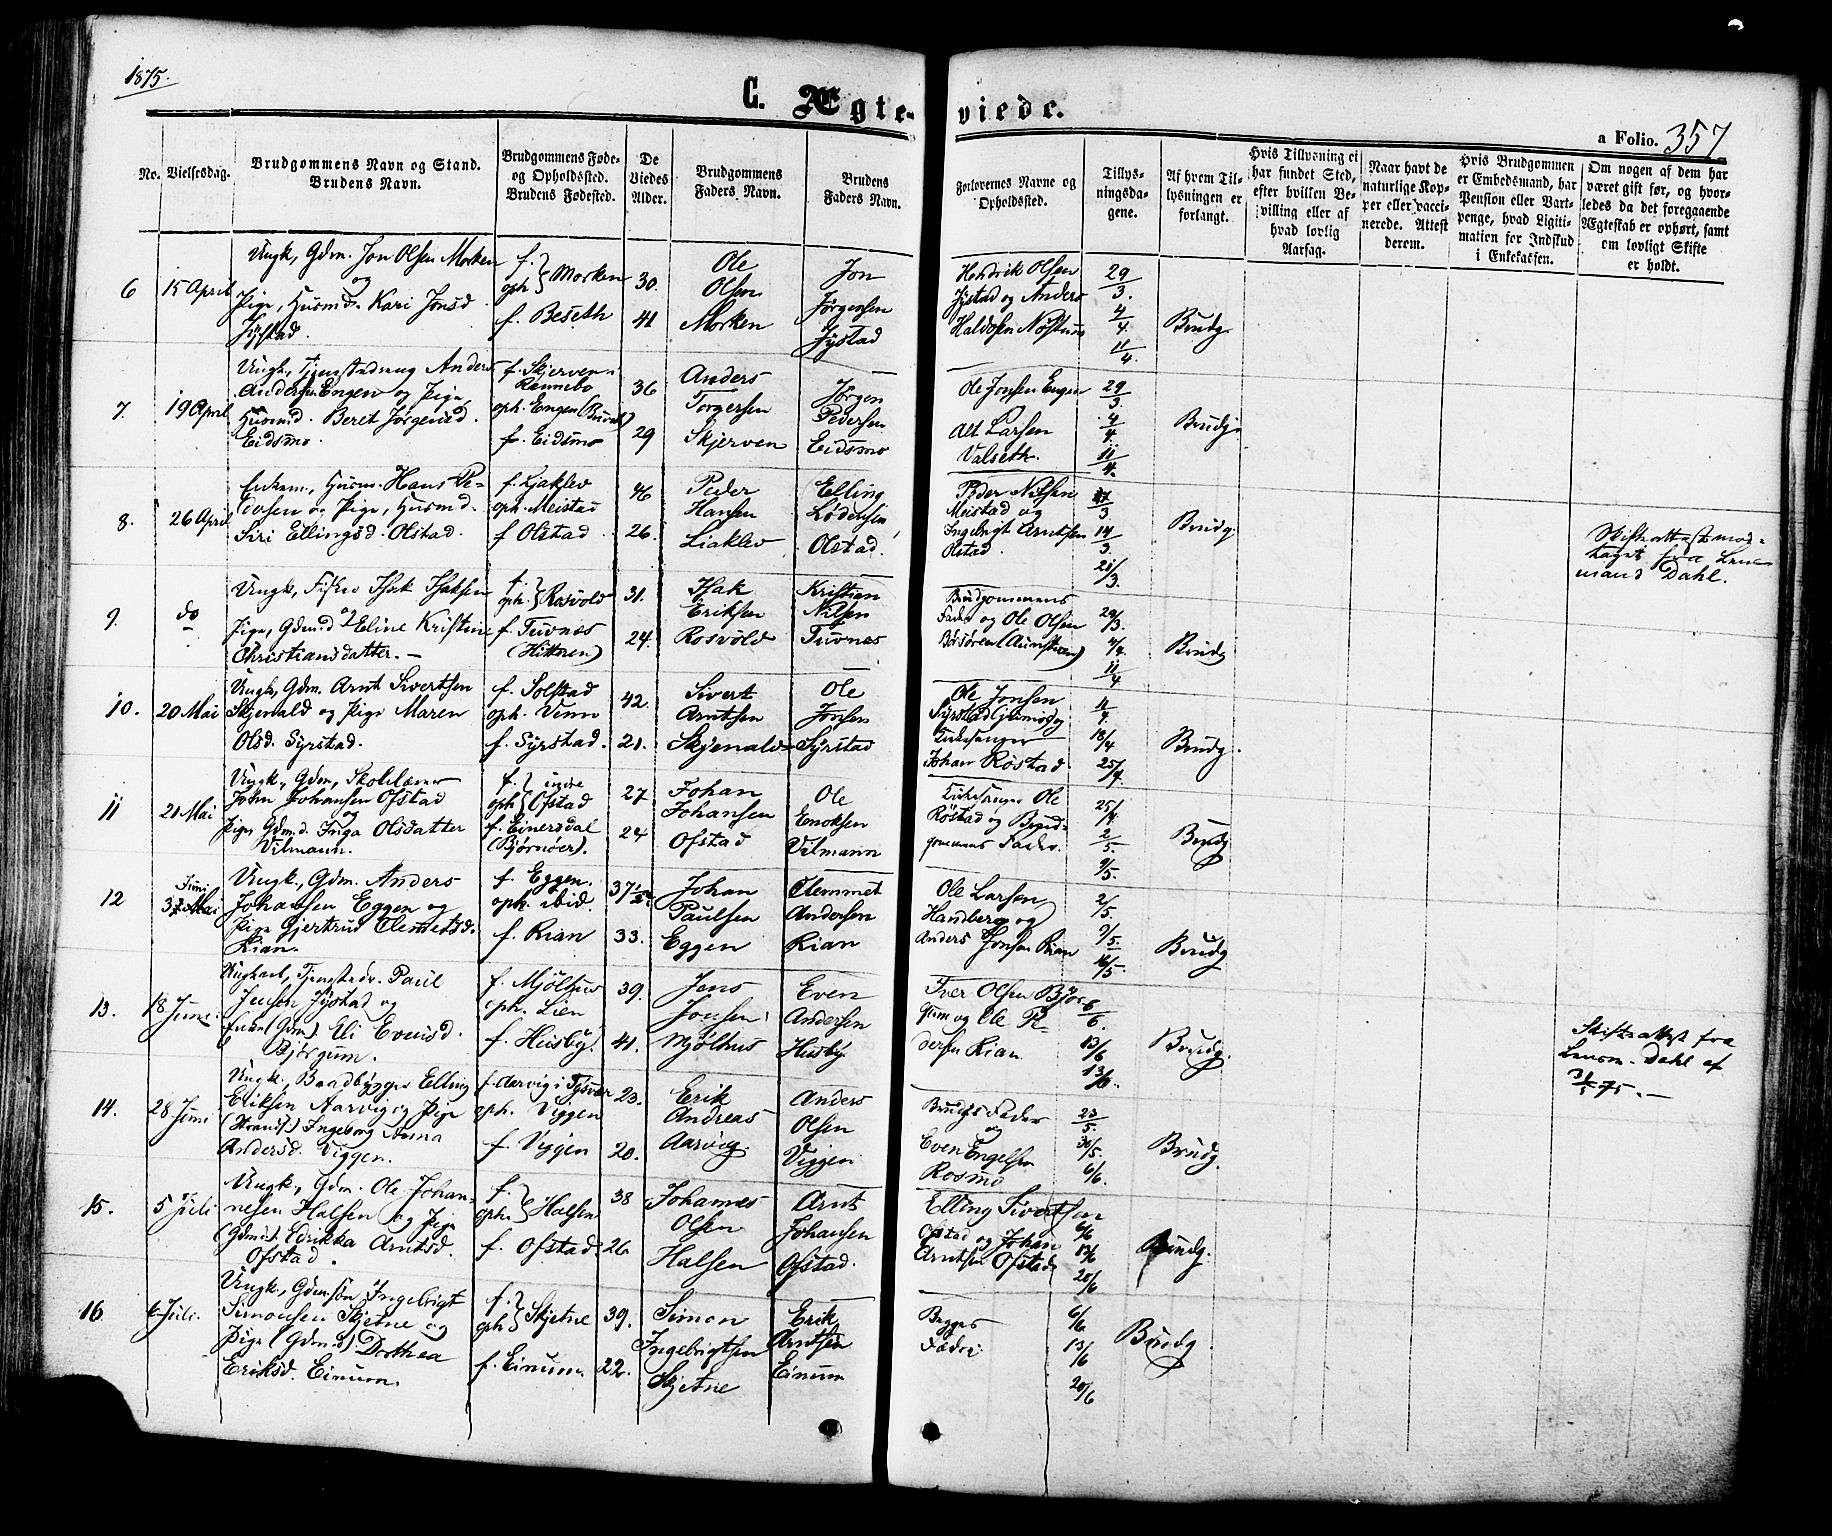 1875.
C. Ægteviede.
a Folio. 357
No.
Vielsesdag.
Brudgommens Navn og Stand.
Brudens Navn.
Brudgommens Føde-
og Opholdssted.
Brudens Fødested.
De
Viedes
Alder.
Brudgommens
Faders Navn.
Brudens
Faders Navn.
Forlovernes Navne og
Opholdssted.
Tillys-
ningsda-
gene.
Af hvem Til-
lysningen er
forlangt.
Hvis Tillysning ei
har fundet Sted,
efter hvilken Be-
villing eller af
hvad lovlig
Aarsag.
Naar havt de
naturlige Kop-
per eller vacci-
nerede. Attest
derom.
Hvis Brudgommen
er Embedsmand, har
Pension eller Vart-
penge, hvad Ligiti-
mation for Indskud
i Enkekassen.
Om nogen af dem har
været gift før, og hvor-
ledes da det foregaaende
Ægteskab er ophørt, samt
om lovligt Skifte
er holdt.
6
15 April
Ungk, Gdm. Jon Olsen Morken
og
Pige, Husmd. Kari Jonsd
Jystad.
f. } Morken
oph
f. Beseth
30.
41
Ole
Olsen
Morken
Jon
Jørgensen
Jystad
Hendrik Olsen
Jystad og Anders
Haldosen Nostum
29/3.
4/4.
11/4.
Brudg
7.
19 April
Ungk, Tjenestedreng Anders
Andersen Engen og Pige,
Husmd. Beret Jørgensd.
Eidsmo.
f. Skjerven i
Rennebo
oph. Engen
f. Eidsmo
36
29
Anders
Torgersen
Skjerven
Jörgen
Pedersen
Eidsmo
Ole Jonsen Engen
Larsen
Valseth.
29/3.
4/4.
11/4.
Brudg
8.
26 April
Enkem., Husm. Hans Pe-
dersen og Pige, Husmd.
Siri Ellingsd. Olstad.
f. Ljaklev
oph. Meistad
f Olstad
46
26.
Peder
Hansen
Liaklev
Elling
Lödensen
Olstad.
Peder Nilsen
Meistad og
Ingebrigt Arntsen
Olstad.
14/3.
21/3.
Brudg.
Skifteattest mod-
taget fra Lens-
mand Dahl.
9.
do
Ungk, Fisker Isak Isaksen
og
Pige, Gdmd. Eline Kristine
Christiansdatter. —
f. } Rosvold
oph.
f. Tuvnes
(Hitteren)
31.
24.
Isak
Eriksen
Rosvold
Kristian
Nilsen
Tuvnes
Brudgommens
Fader og Ole Olsen
29/3.
4/4.
11/4
Brudg
10.
20 Mai
Ungk, Gdm. Arnt Sivertsen
Skjenald og Pige Maren
Olsd. Syrstad.
f. Solstad
oph. Venn
f. Syrstad.
42.
21.
Sivert
Arntsen
Skjenald
Ole
Jonsen
Syrstad
Ole Jonsen
Syrstad
Kirkesanger
Johan Röstad
11/4.
18/4
25/4.
Brudg.
11
21 Mai
Ungk, Gdm, Skolelærer
John Johansen Ofstad
og
Pige Gdmd. Inga Olsdatter
Vilmann.
f. } indre
oph. Ofstad
f. Einersdal
(Bjørnøer).
27
24
Johan
Johansen
Ofstad
Ole
Enoksen
Vilmann
Kirkesanger Ole
Röstad og Brud-
gommens Fader.
25/4.
2/5.
9/5.
Brudg
12
Juni
3 Mai
Ungk, Gdm. Anders
Johansen Eggen og
Pige Gjertrud Clemetsd.
Rian.
f. Eggen.
oph. ibid.
f. Rian
37 1/2
33.
Johan
Paulsen
Eggen
Clemmet
Andersen
Rian
Ole Larsen
Handberg og
Anders Jonsen Rian
2/5.
9/5
16/5.
Brudg
13.
18 Juni
Ungkarl, Tjenestedr. Paul
Jensen Jystad og
Enke (Gdm.) Eli Evensd.
Björgum.
f. Mjölhus
oph. Lien
f. Husby.
39.
41.
Jens
Jonsen
Mjölhus
Even
Andersen
Husby.
Iver Olsen Björ-
gum og Ole P-
dersen Rian
6/6.
13/6
13/6.
Brudg.
Skifteattest fra
Lensm. Dahl af
31/5 75. —
14.
28 Juni
Ungk., Baadbygger Elling
Eriksen Aarvig og Pige
(Strands.) Ingeborg Anna
Andersd. Viggen.
f. Aarvig i Tysvær
oph. Viggen
f. Viggen
23.
20.
Erik
Andreas
Aarvig
Anders
Olsen
Viggen
Brudgs Fader
og
Even Engelsen
Rosmo
23/5.
30/5.
6/6.
Brudg.
15.
5 Juli
Ungk, Gdm. Ole Johan-
nesen Halsen og Pige
(Gdmd). Edrikka Arntsd.
Ofstad
f. } Halsen
oph.
f. Ofstad
38
26
Johannes
Olsen
Halsen
Arnt
Johansen
Ofstad.
Elling Sivertsen
Ofstad og Johan
Arntsen Ofstad
6/6
13/6
20/6
Brudg.
16
6 Juli.
Ungk., Gdmsön Ingebrigt
Simonsen Skjetne og
Pige (Gdmd) Dorthea
Eriksd. Einum.
f. } Skjetne
oph
f. Einum.
39.
22.
Simon
Ingebrigtsen
Skjetne
Erik
Arntsen
Einum
Begges
Fædre
6/6
13/6
20/6
Brudg.